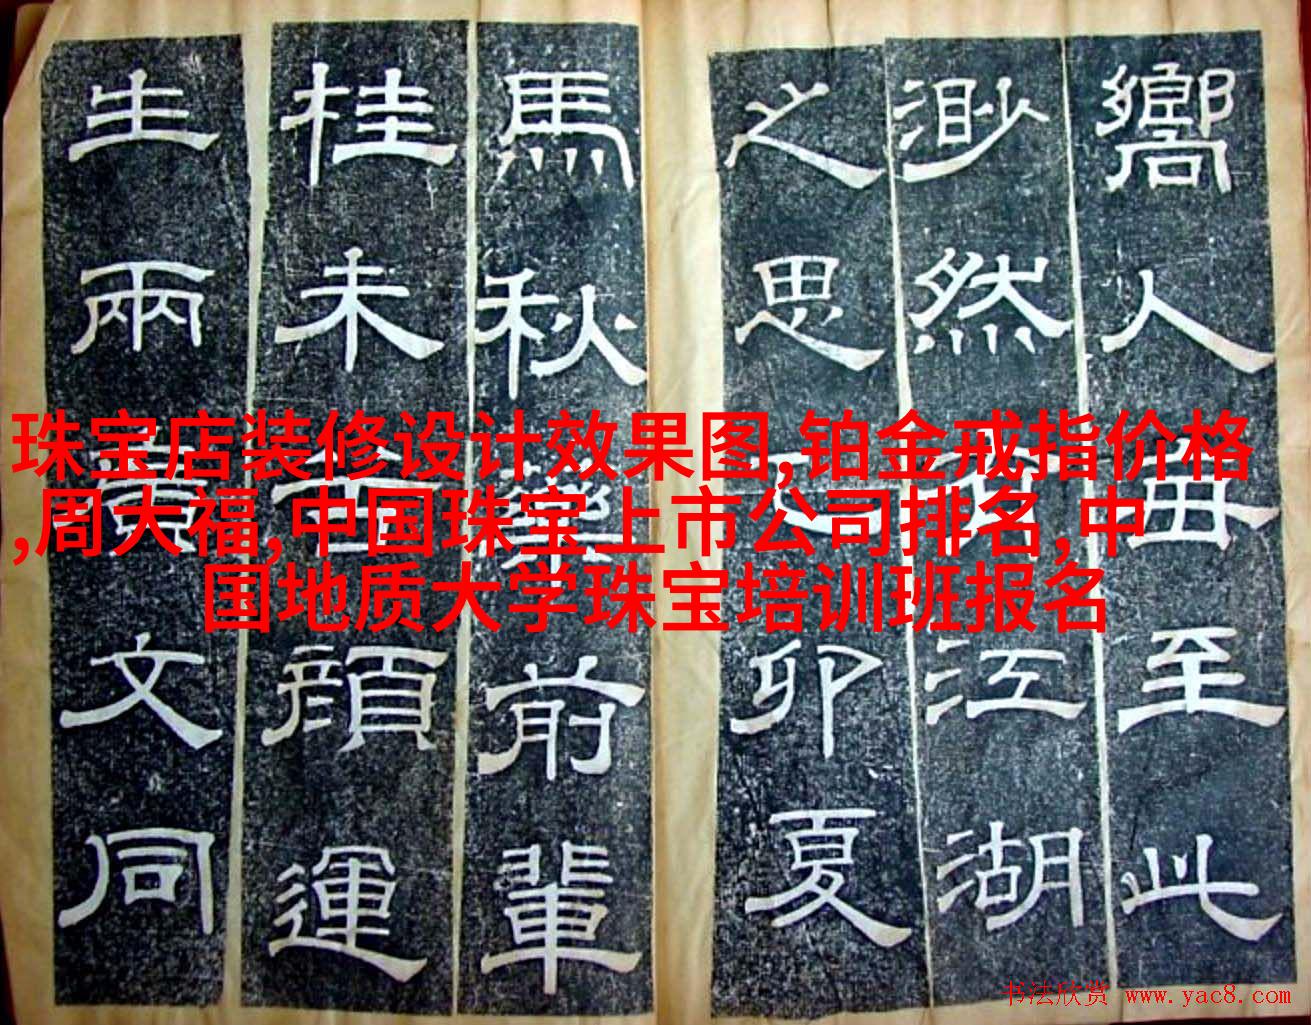 嚮人至此
渺然江湖
之思卯夏
馬秋藥前輩
桂未顏運
生兩文同
珠宝店装修设计效果图,铂金戒指价格
,周大福,中国珠宝上市公司排名,中
国地质大学珠宝培训班报名
书法欣赏 www.yac8.com